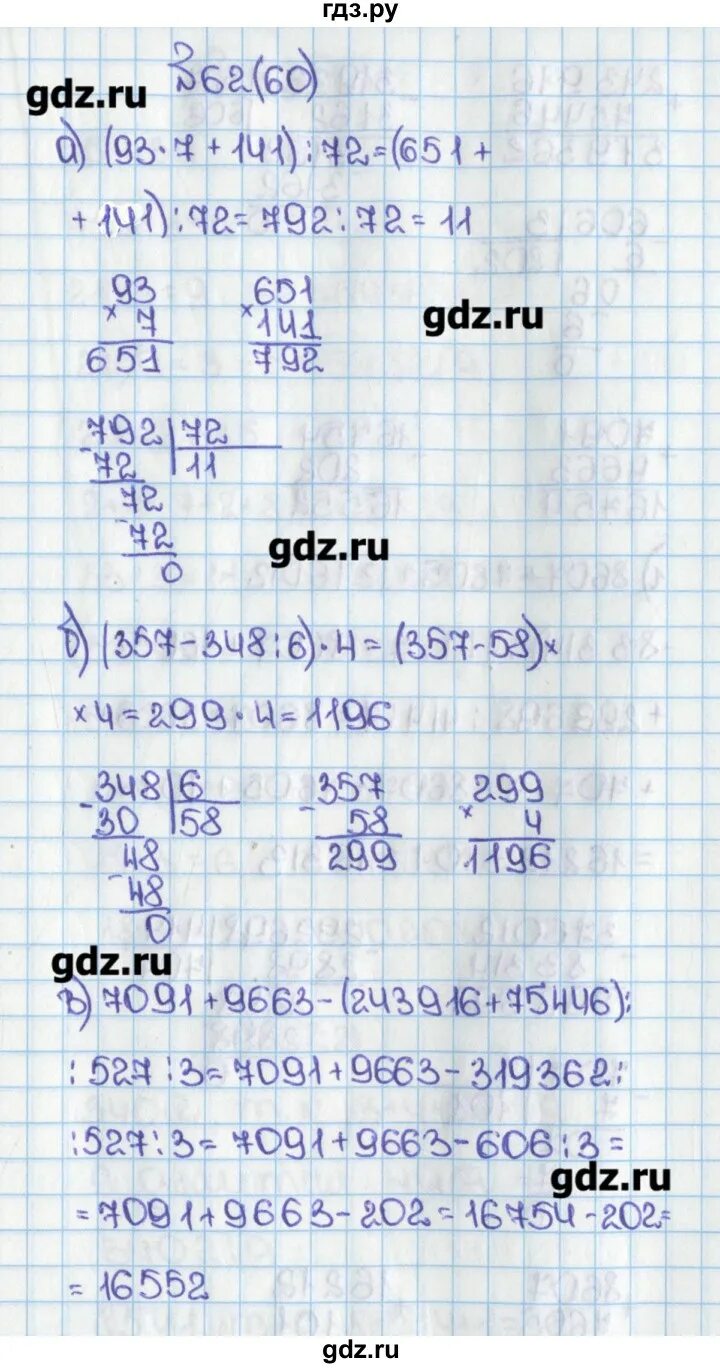 гдз.ру
№62(60)
gdz.ru
а) (93·7+141):72=(651+
+141):72=792:72=11
93 651
× 7 ×141
651 792
gdz.ru
792 72
-72 11
72
-72
0
gdz.ru
б) (357-348:6)·4=(357-58)×
×4=299·4=1196
-348 6 -357 ×299
30 58 58 4
48 299 1196
-48
0
gdz.ru
в) 7091+9663-(243916+75446):
:527:3=7091+9663-319362:
:527:3=7091+9663-606:3=
gdz.ru
=7091+9663-202=16754-202=
=16552
gdz.ru